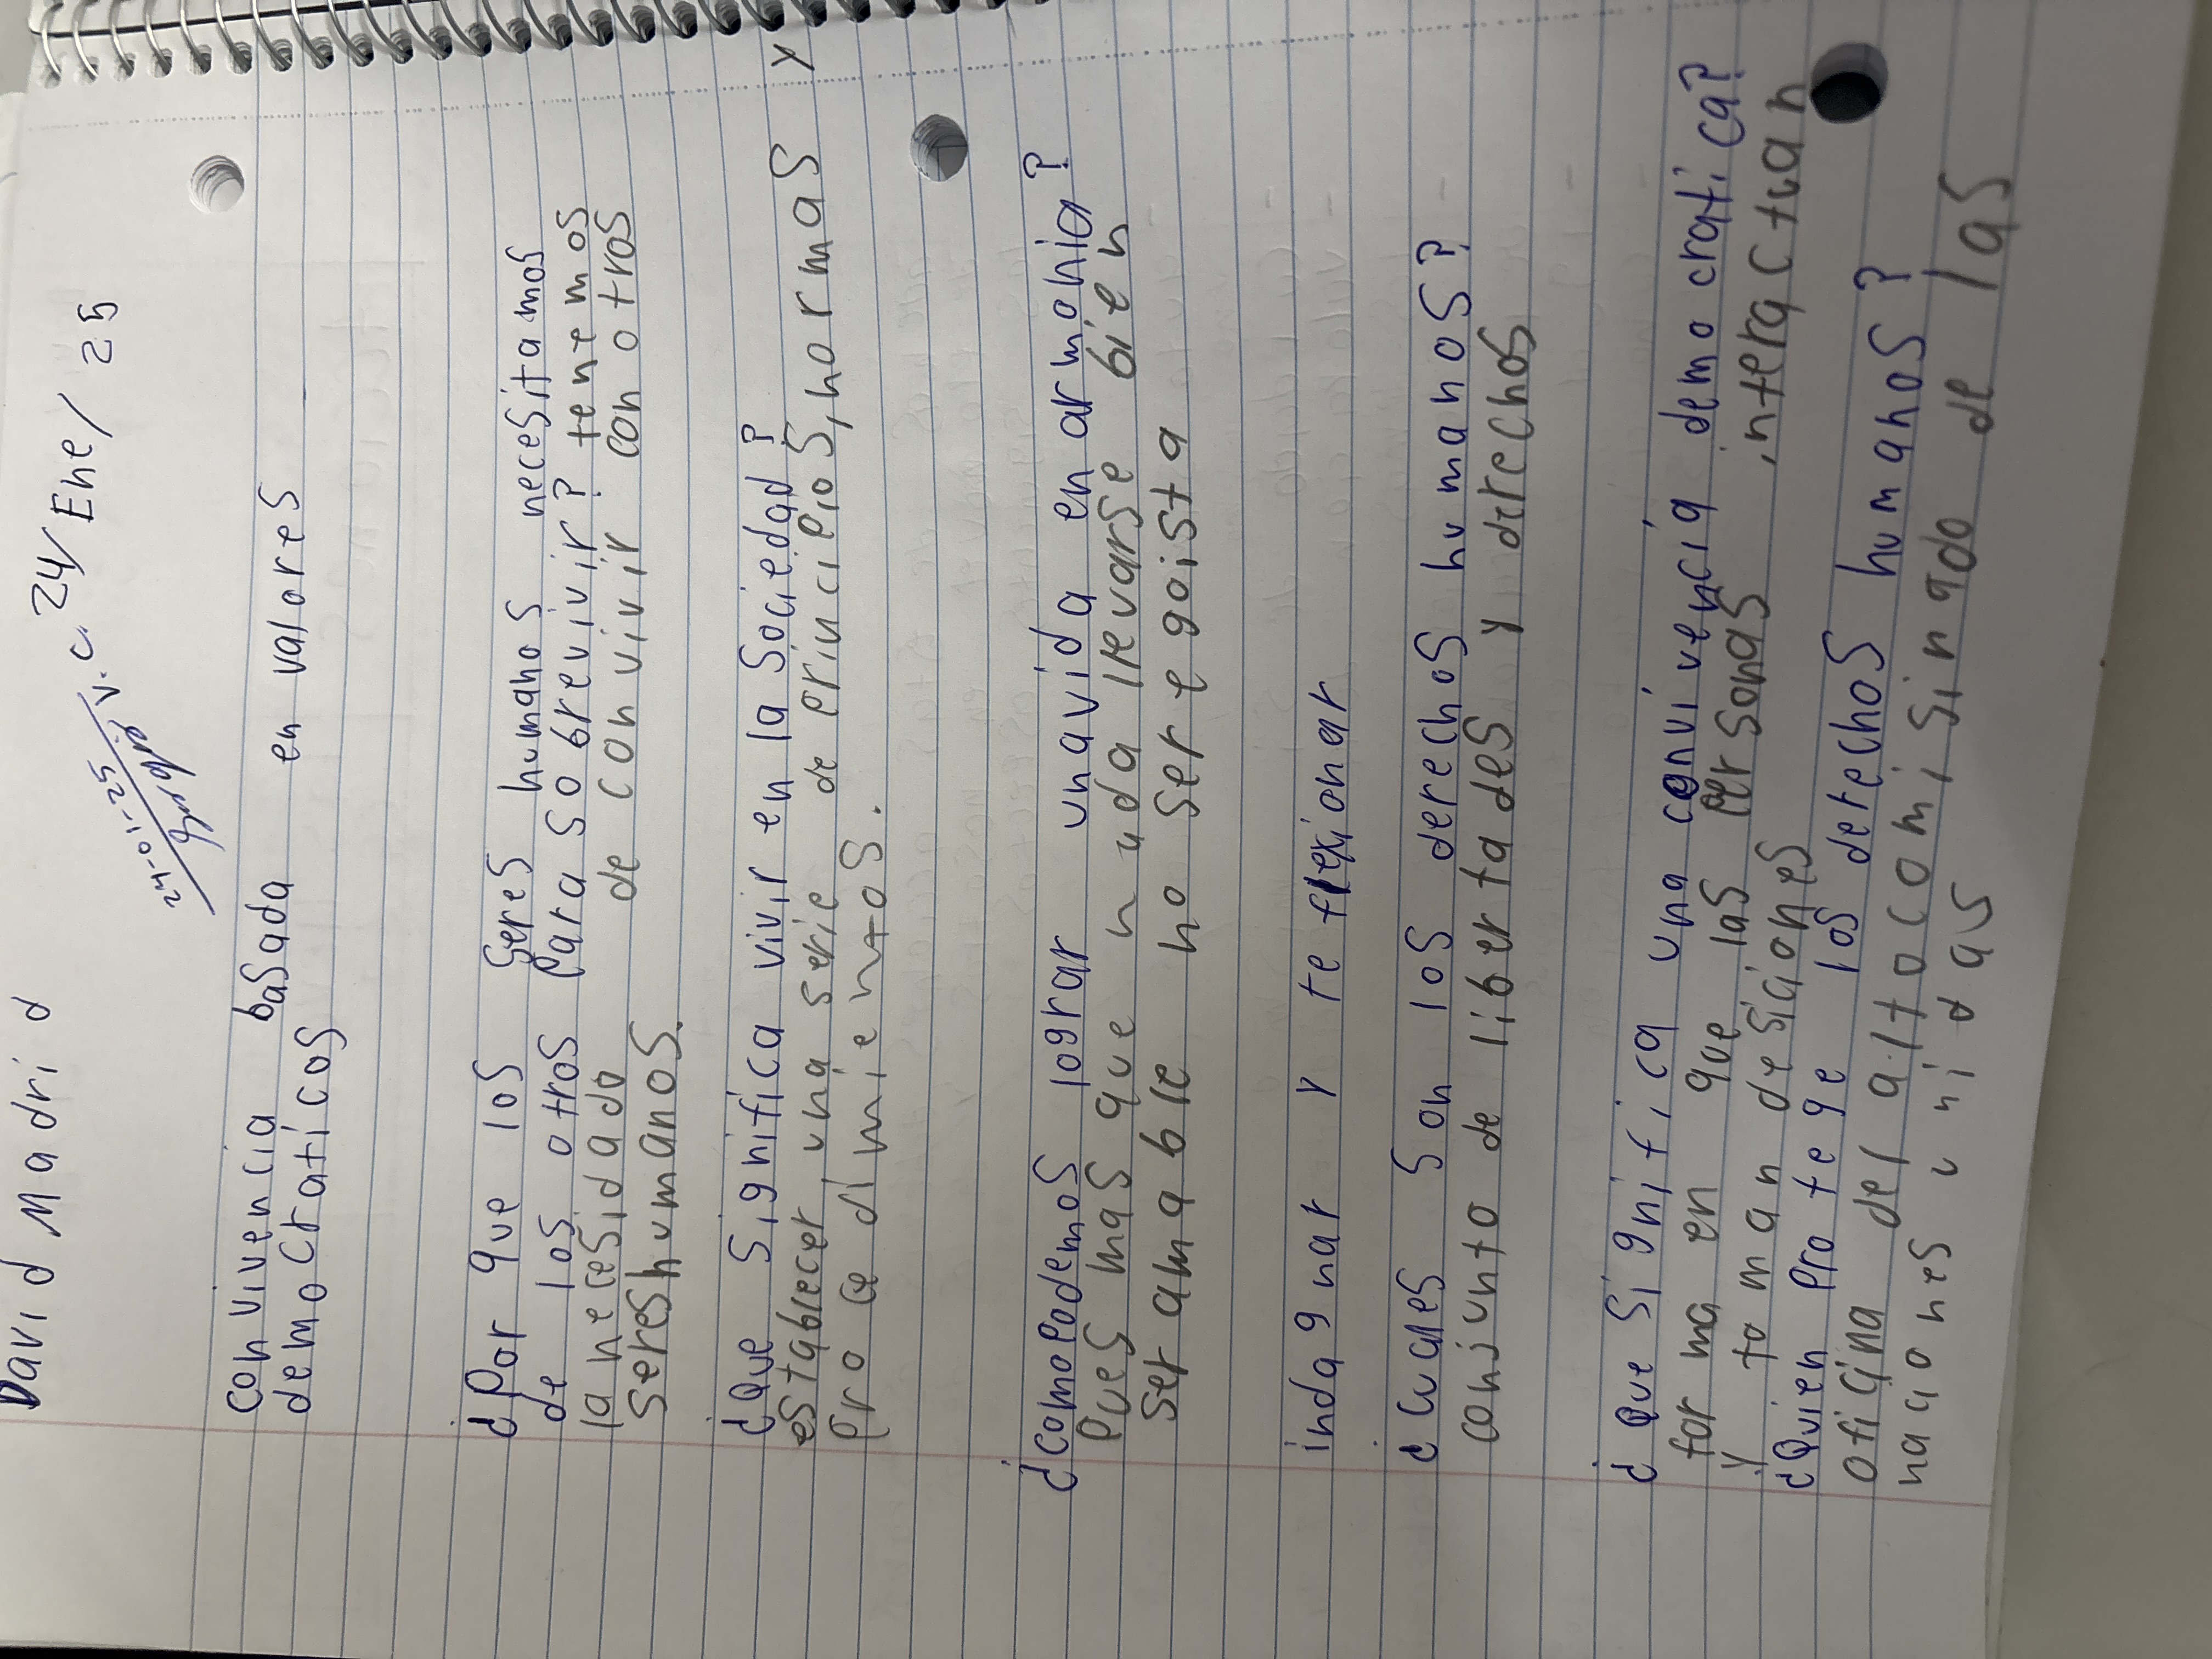 David Madrid
V.C. 24/Ene/25
24-01-25
convivencia basada en valores
democraticos
¿Por que los seres humanos necesitamos
de los otros para sobrevivir? tenemos
la necesidado de convivir con otros
seres humanos.
¿Que significa vivir en la sociedad?
establecer una serie de principios, normas y
procedimientos.
¿como podemos lograr una vida en armonia?
Pues mas que nada llevarse bien
ser amable no ser egoista
indagnar y reflexionar
¿cuales son los derechos humanos?
conjunto de libertades y derechos
¿Que significa una convivencia democratica?
forma en que las personas interactuan
y toman desiciones
¿Quien protege los derechos humanos?
oficina del alto comisinado de las
naciones unidas